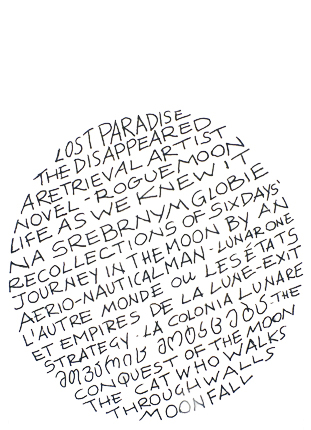 LOST PARADISE
THE DISAPPEARED
A RETRIEVAL ARTIST
NOVEL - ROGUE MOON
LIFE AS WE KNEW IT
NA SREBRNYM GLOBIE
RECOLLECTIONS OF SIX DAYS'
JOURNEY IN THE MOON BY AN
AERIO-NAUTICAL MAN - LUNAR ONE
L'AUTRE MONDE OU LES ÉTATS
ET EMPIRES DE LA LUNE - EXIT
STRATEGY · LA COLONIA LUNARE
THE
CONQUEST OF THE MOON
THE CAT WHO WALKS
THROUGH WALLS
MOONFALL